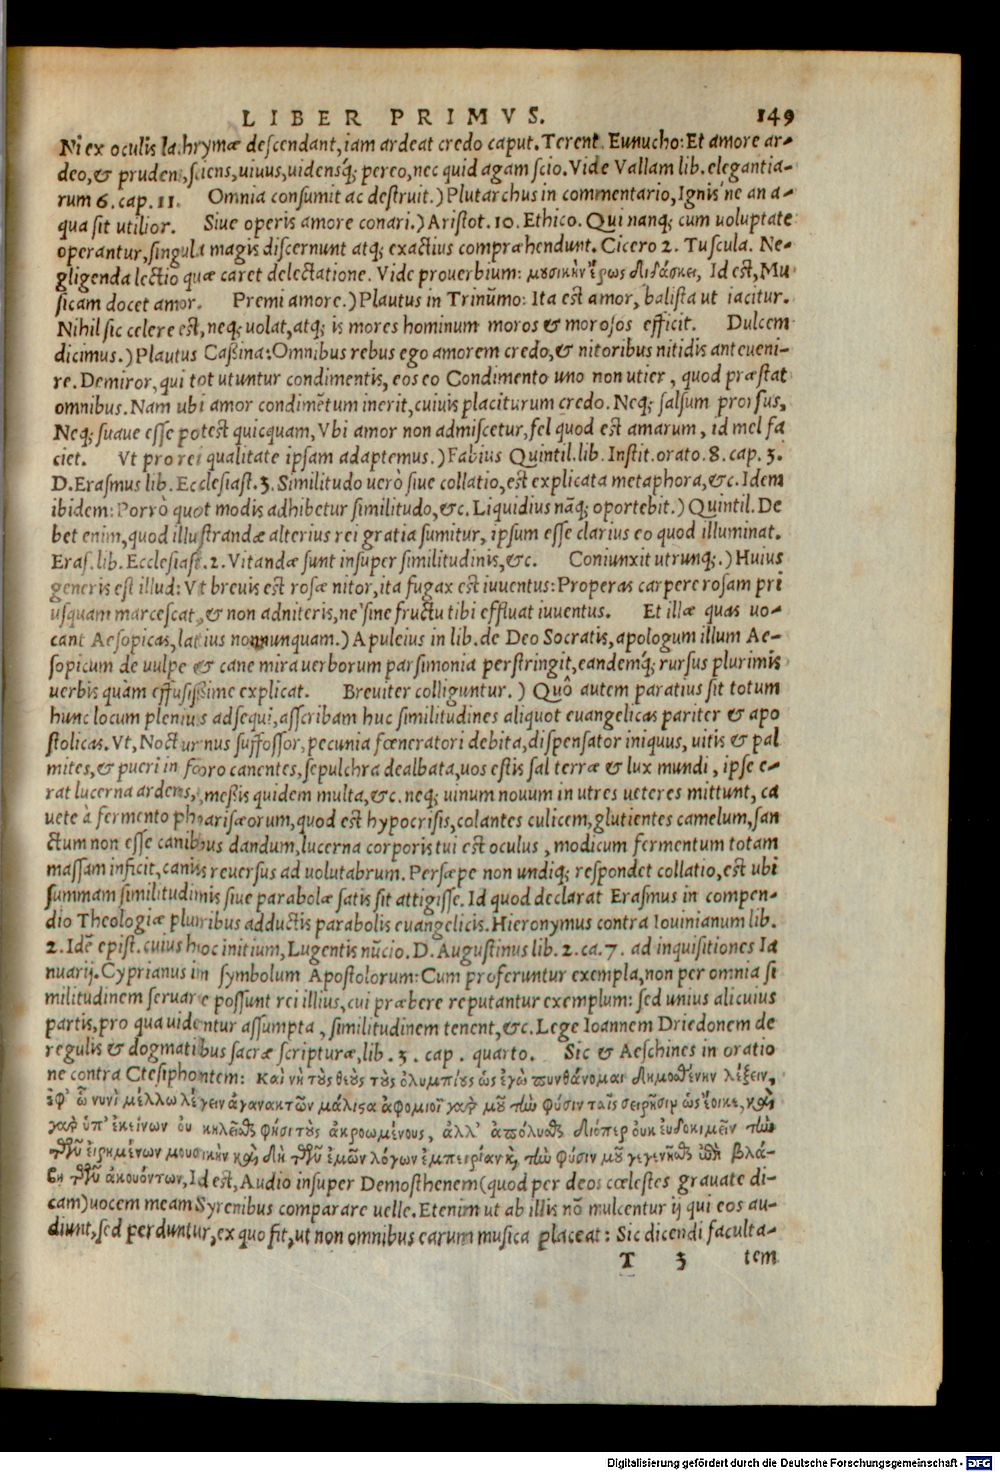 LIBER PRIMVS. 149
Ni ex oculis lachrymæ descendant, iam ardeat credo caput. Terent Eunucho: Et amore ar-
deo, & prudens, sciens, uiuus, uidensq́; pereo, nec quid agam scio. Vide Vallam lib. elegantia-
rum 6. cap. 11. Omnia consumit ac destruit.) Plutarchus in commentario, Ignis ne an a-
qua sit utilior. Siue operis amore conari.) Aristot. 10. Ethico. Qui nanq; cum uoluptate
operantur, singula magis discernunt atq; exactius compræhendunt. Cicero 2. Tuscula. Ne-
gligenda lectio quæ caret delectatione. Vide prouerbium: μουσικὴν ἔρως διδάσκει, Id est, Mu
sicam docet amor. Premi amore.) Plautus in Trinūmo: Ita est amor, balista ut iacitur.
Nihil sic celere est, neq; uolat, atq; is mores hominum moros & morosos efficit. Dulcem
dicimus.) Plautus Caßina: Omnibus rebus ego amorem credo, & nitoribus nitidis anteueni-
re. Demiror, qui tot utuntur condimentis, eos eo Condimento uno non utier, quod præstat
omnibus. Nam ubi amor condimētum inerit, cuiuis placiturum credo. Neq; salsum prorsus,
Neq; suaue esse potest quicquam, Vbi amor non admiscetur, fel quod est amarum, id mel fa
ciet. Vt pro rei qualitate ipsam adaptemus.) Fabius Quintil. lib. Instit. orato. 8. cap. 3.
D. Erasmus lib. Ecclesiast. 3. Similitudo uerò siue collatio, est explicata metaphora, &c. Idem
ibidem: Porrò quot modis adhibetur similitudo, &c. Liquidius nāq; oportebit.) Quintil. De
bet enim, quod illustrandæ alterius rei gratia sumitur, ipsum esse clarius eo quod illuminat.
Eras. lib. Ecclesiast. 2. Vitandæ sunt insuper similitudinis, &c. Coniunxit utrunq;.) Huius
generis est illud: Vt breuis est rosæ nitor, ita fugax est iuuentus: Properas carpere rosam pri
usquam marcescat, & non adniteris, ne sine fructu tibi effluat iuuentus. Et illæ quas uo-
cant Aesopicas, latius nonnunquam.) Apuleius in lib. de Deo Socratis, apologum illum Ae-
sopicum de uulpe & cane mira uerborum parsimonia perstringit, eandemq́; rursus plurimis
uerbis quàm effusißime explicat. Breuiter colliguntur.) Quô autem paratius sit totum
hunc locum plenius adsequi, asscribam huc similitudines aliquot euangelicas pariter & apo
stolicas. Vt, Nocturnus suffossor, pecunia fœneratori debita, dispensator iniquus, uitis & pal
mites, & pueri in foro canentes, sepulchra dealbata, uos estis sal terræ & lux mundi, ipse e-
rat lucerna ardens, meßis quidem multa, &c. neq; uinum nouum in utres ueteres mittunt, ca
uete à fermento pharisæorum, quod est hypocrisis, colantes culicem, glutientes camelum, san
ctum non esse canibus dandum, lucerna corporis tui est oculus, modicum fermentum totam
massam inficit, canis reuersus ad uolutabrum. Persæpe non undiq; respondet collatio, est ubi
summam similitudinis siue parabolæ satis sit attigisse. Id quod declarat Erasmus in compen-
dio Theologiæ pluribus adductis parabolis euangelicis. Hieronymus contra Iouinianum lib.
2. Idē epist. cuius hoc initium, Lugentis nūcio. D. Augustinus lib. 2. ca. 7. ad inquisitiones Ia
nuarij. Cyprianus in symbolum Apostolorum: Cum proferuntur exempla, non per omnia si
militudinem seruare possunt rei illius, cui præbere reputantur exemplum: sed unius alicuius
partis, pro qua uidentur assumpta, similitudinem tenent, &c. Lege Ioannem Driedonem de
regulis & dogmatibus sacræ scripturæ, lib. 3. cap. quarto. Sic & Aeschines in oratio
ne contra Ctesiphontem: καὶ νὴ τοὺς θεοὺς τοὺς ὀλυμπίους ὡς ἐγὼ πυνθάνομαι δημοσθένην λέξειν,
ἐφ᾽ ᾧ νυνὶ μέλλω λέγειν ἀγανακτῶν μάλιστα ἀφομοιοῖ γὰρ μοῦ τὴν φύσιν ταῖς σειρῆσιν ὡς ἔοικε, καὶ
γὰρ ὑπ᾽ ἐκείνων οὐ κηλεῖσθαι φησι τοὺς ἀκροωμένους, ἀλλ᾽ ἀπόλυσθαι διόπερ οὐκ εὐδοκιμεῖν τὴν
τῶν εἰρημένων μουσικὴν καὶ δὴ τῶν ἐμῶν λόγων ἐμπειρίαν καὶ τὴν φύσιν μοῦ γεγενῆσθαι ἐπὶ βλά-
βῃ τῶν ἀκουόντων, Id est, Audio insuper Demosthenem (quod per deos cœlestes grauate di-
cam) uocem meam Syrenibus comparare uelle. Etenim ut ab illis nō mulcentur ij qui eos au-
diunt, sed perduntur, ex quo fit, ut non omnibus earum musica placeat: Sic dicendi faculta-
T 3 tem
Digitalisierung gefördert durch die Deutsche Forschungsgemeinschaft - DFG